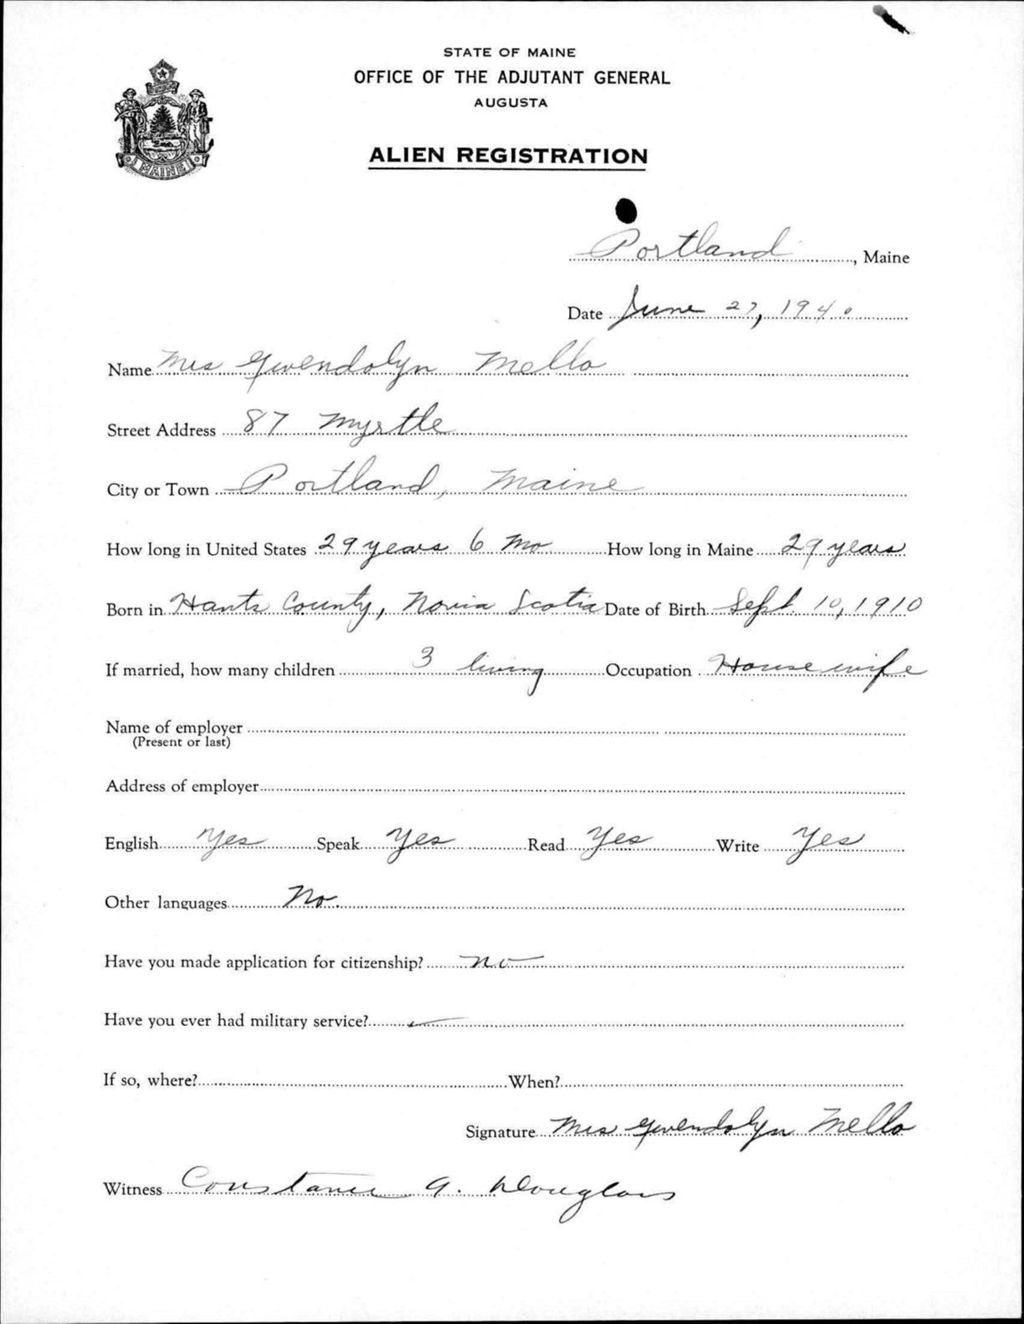 STATE OF MAINE
OFFICE OF THE ADJUTANT GENERAL
AUGUSTA
ALIEN REGISTRATION
MAINE
Portland, Maine
Date June 27, 1940
Name Mrs Gwendolyn Mello
Street Address 87 Myrtle
City or Town Portland, Maine
How long in United States 29 years 6 mo How long in Maine 29 years
Born in Hants County, Novia Scotia Date of Birth Sept 10, 1910
If married, how many children 3 living Occupation Housewife
Name of employer
(Present or last)
Address of employer
English Yes Speak Yes Read Yes Write Yes
Other languages No.
Have you made application for citizenship? no
Have you ever had military service? -
If so, where? When?
Signature Mrs Gwendolyn Mello
Witness Constance A. Douglass